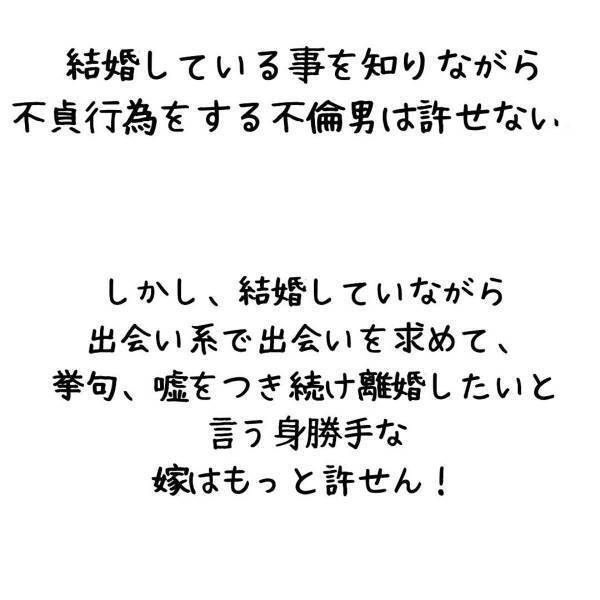 結婚している事を知りながら
不貞行為をする不倫男は許せない
しかし、結婚していながら
出会い系で出会いを求めて、
挙句、嘘をつき続け離婚したいと
言う身勝手な
嫁はもっと許せん！